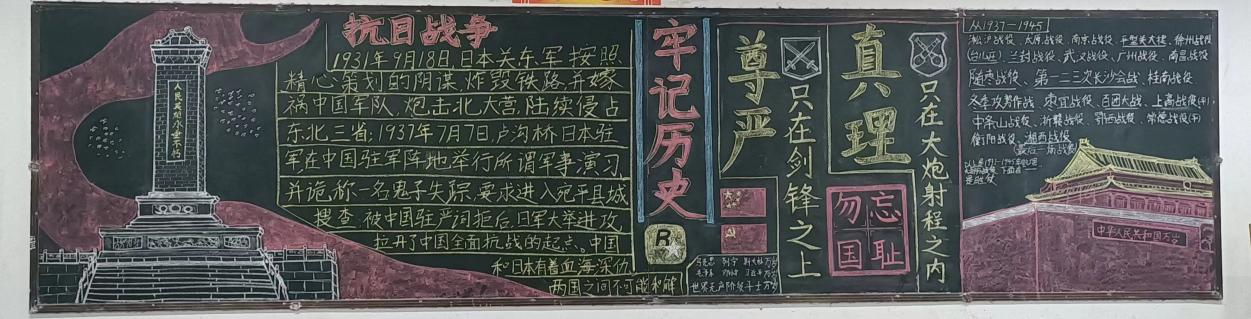 抗日战争
1931年9月18日日本关东军按照
精心策划的阴谋,炸毁铁路,并嫁
祸中国军队,炮击北大营,陆续侵占
东北三省;1937年7月7日,卢沟桥,日本驻
军在中国驻军阵地举行所谓军事演习
并诡称一名鬼子失踪,要求进入宛平县城
搜查,被中国驻严词拒后,日军大举进攻
拉开了中国全面抗战的起点。中国
和日本有着血海深仇
两国之间不可能和解
人民英雄永垂不朽
牢记历史
R
尊严
只在剑锋之上
真理
只在大炮射程之内
勿忘
国耻
马克思 列宁 斯大林万岁
毛泽东
世界无产阶级斗士万岁
从1937-1945
淞沪战役、太原战役、南京战役、平型关大捷、徐州战役
(台儿庄)、兰封战役、武汉战役、广州战役、南昌战役
随枣战役、第一二三次长沙会战、桂南战役
冬季攻势作战、枣宜战役、百团大战、上高战役
中条山战役、浙赣战役、鄂西战役、常德战役
衡阳战役、湘西战役
(最后一场战役)
中华人民共和国万岁